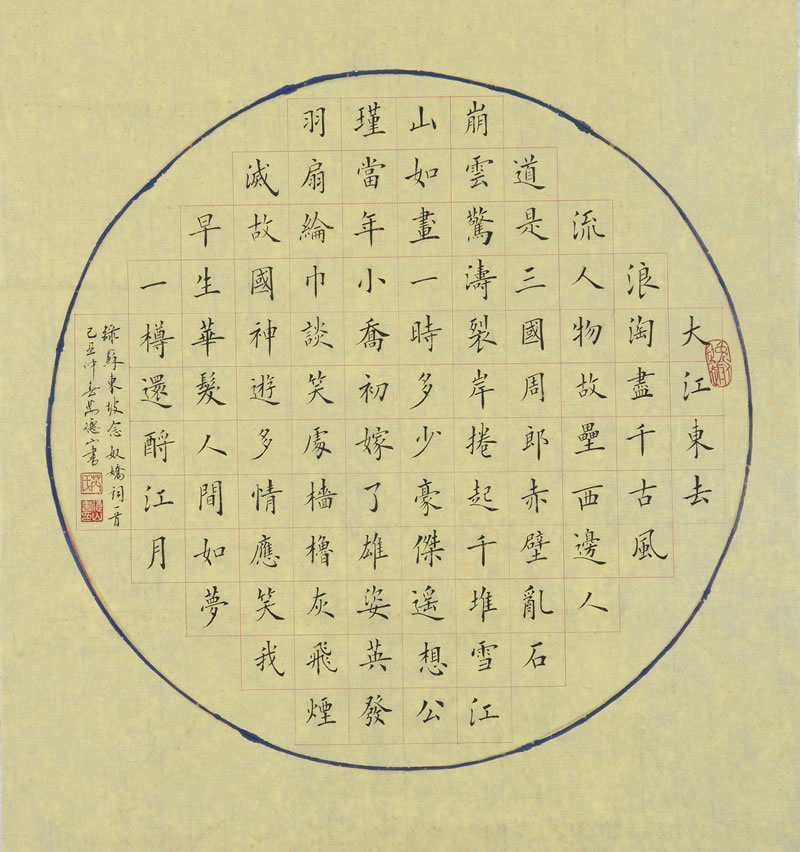 大江東去
浪淘盡千古風
流人物故壘西邊人
道是三國周郎赤壁亂石
崩雲驚濤裂岸捲起千堆雪江
山如畫一時多少豪傑遥想公
瑾當年小喬初嫁了雄姿英發
羽扇綸巾談笑處檣櫓灰飛煙
滅故國神遊多情應笑我
早生華髮人間如夢
一樽還酹江月
錄蘇東坡念奴嬌詞一首
己丑仲春書